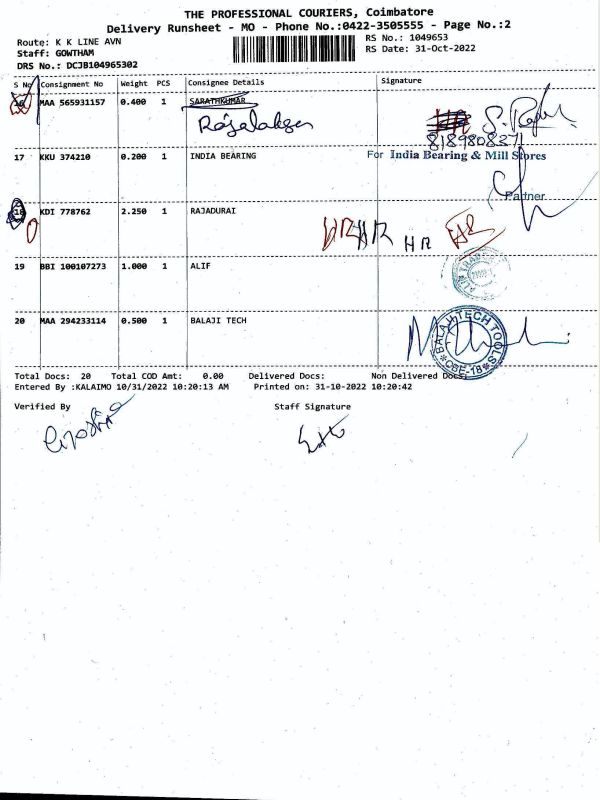 THE PROFESSIONAL COURIERS, Coimbatore
Delivery Runsheet - MO - Phone No.:0422-3505555 - Page No.:2
Route: K K LINE AVN
Staff: GOWTHAM
DRS No.: DCJB104965302
RS No.: 1049653
RS Date: 31-Oct-2022
S No Consignment No Weight PCS Consignee Details Signature
16 MAA 565931157 0.400 1 SARATHKUMAR
HR
8189808371
17 KKU 374210 0.200 1 INDIA BEARING
For India Bearing & Mill Stores
Partner
18 KDI 778762 2.250 1 RAJADURAI
HR HR HR HR
19 BBI 100107273 1.000 1 ALIF
20 MAA 294233114 0.500 1 BALAJI TECH
BALAJI TECH TOOLS
CBE-18
Total Docs: 20 Total COD Amt: 0.00 Delivered Docs: Non Delivered Docs:
Entered By :KALAIMO 10/31/2022 10:20:13 AM Printed on: 31-10-2022 10:20:42
Verified By Staff Signature